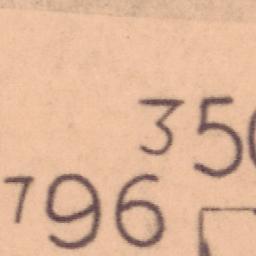 35
796